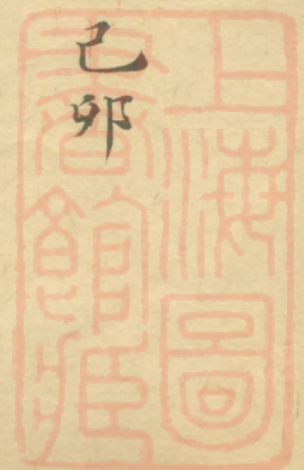 己卯
上海圖
書館藏